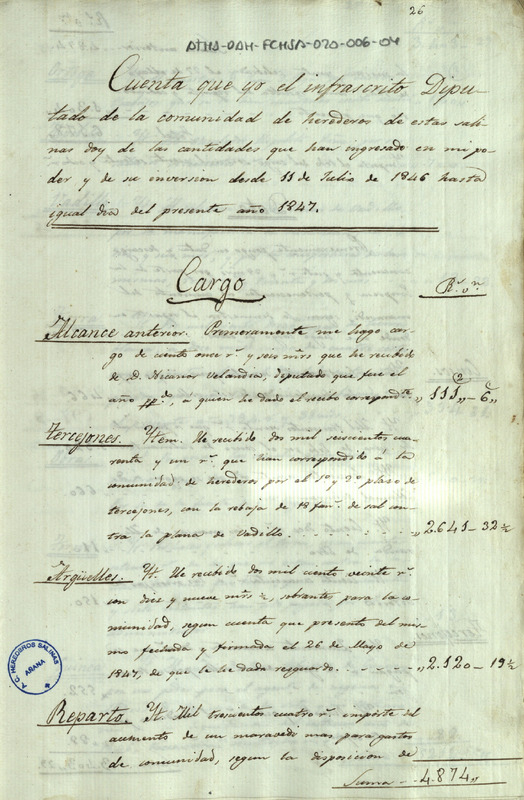 26
ATHA-DAH-FCHSA-020-006-04
Cuenta que yo el infrascrito Dipu-
tado de la comunidad de herederos de estas sali-
nas doy de las cantidades que han ingresado en mi po-
der y de su inversion desde 11 de Julio de 1846 hasta
igual dia del presente año 1847.
Cargo
R.s v.n
Alcance anterior. Primeramente me hago car-
go de ciento once r.s y seis mrs que he recibido
de D. Nicanor Velandia, deputado que fue el
año pp.do, á quien he dado el recibo correspond.te „ 111„ - 6„
Tercejones. Ytem. He recibido dos mil seiscientos cua-
renta y un r.s que han correspondido á la
comunidad de herederos por el 1º y 2º plazo de
tercejones, con la rebaja de 18 fan.s de sal con-
tra la plana de Vadillo. „ 2.641 - 32 ½
Argüelles. Yt. He recibido dos mil ciento veinte r.s
con diez y nueve mrs ½, sobrantes para la co-
munidad, segun cuenta que presento del mis-
mo fechada y firmada el 26 de Mayo de
1847, de que le he dado resguardo. „ 2.120 - 19 ½
A.C. HEREDEROS SALINAS
AÑANA
Reparto. Yt. Mil trescientos cuatro r.s importe del
aumento de un maravedi mas para gastos
de comunidad, segun la disposicion de
Suma - 4.874„